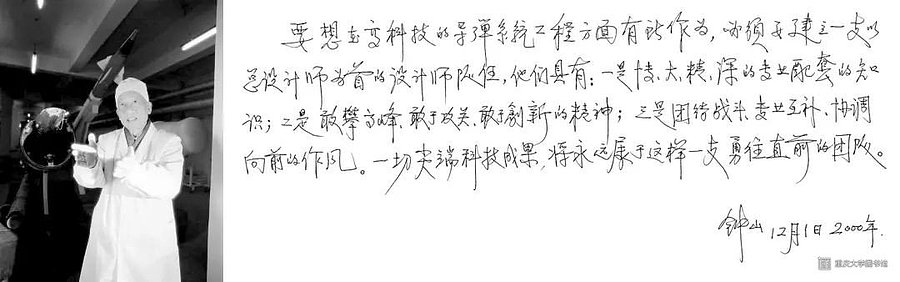 要想在高科技的导弹系统工程方面有所作为,必须要建立一支以
总设计师为首的设计师队伍,他们具有:一是博、大、精、深的专业配套的知
识;二是敢攀高峰、敢于攻关、敢于創新的精神;三是团结战斗、专业互补、协调
向前的作风。一切尖端科技成果,将永远属于这样一支勇往直前的团队。
钟山 12月1日 2000年.
重庆大学图书馆